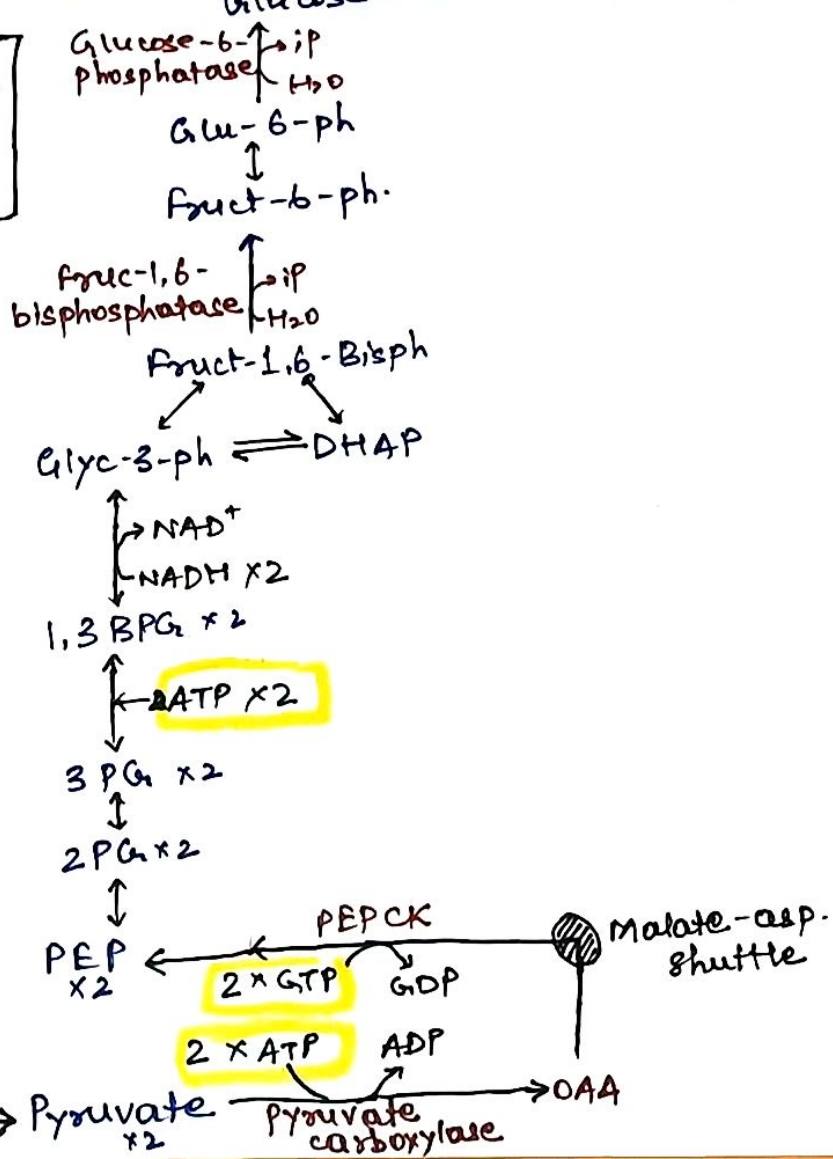 Glucose-6-
phosphatase
iP
H₂O
Glu-6-ph
Fruct-6-ph.
fruc-1,6-
bisphosphatase
iP
H₂O
Fruct-1,6-Bisph
Glyc-3-ph ⇌ DHAP
NAD⁺
NADH ×2
1,3 BPG × 2
ATP ×2
3 PG ×2
2PG×2
PEPCK
Malate-asp.
shuttle
PEP
×2
2 × GTP
GDP
2 × ATP
ADP
Pyruvate
×2
Pyruvate
carboxylase
OAA